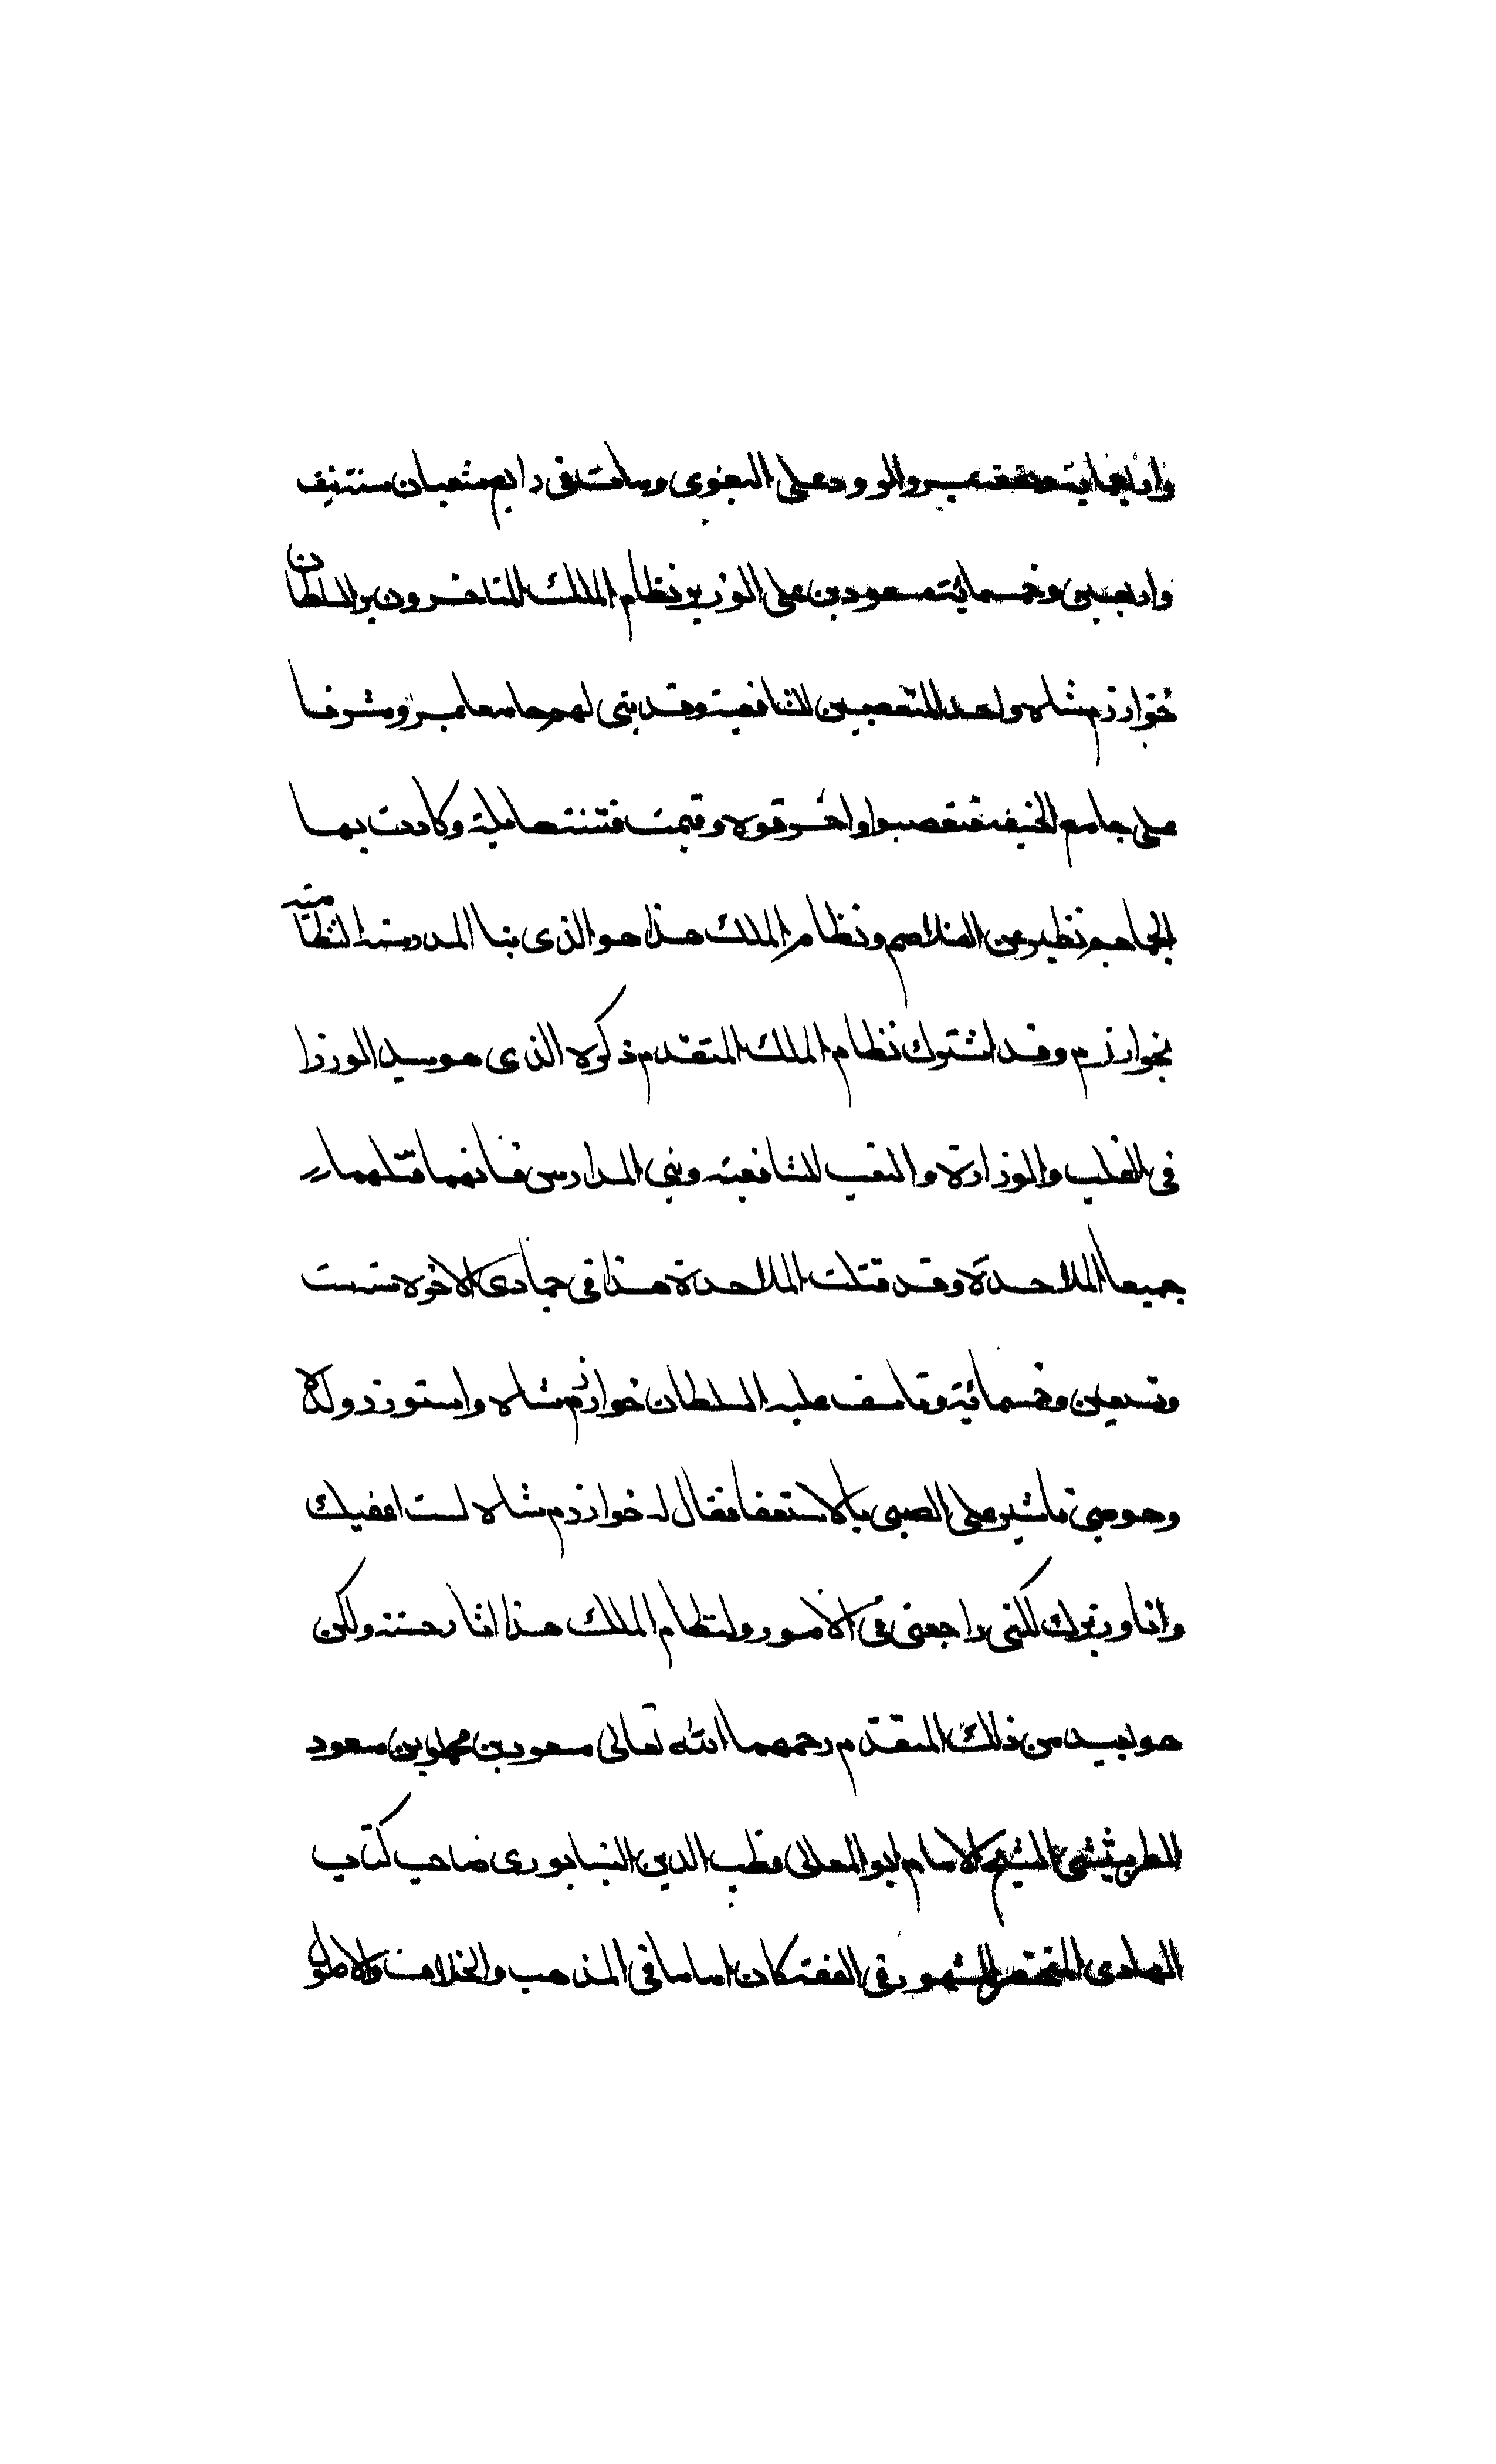 واربعماية وتفقه بمرو الرود على البغوى ومات فى رابع شعبان سنة نيف
واربعين وخمسمائة مسعود بن على الوزير نظام الملك المتاخر وزير السلطان
خوارزم شاه واحد المتعصبين للشافعية وقد بنى لهم جامعا بمرو مشرفا
على جامع الحنيفه فتعصبوا واحرقوه وقيمت فتنة هايلة وكادت بها
الجماجم تطير عن الغلاصم ونظام الملك هذا هو الذى بنا المدرسة النظامية
بخوارزم وقد اشترك نظام الملك المتقدم ذكره الذى هو سيد الوزرا
فى اللقب والوزارة والتعب للشافعية وبنى المدارس فانهما قتلهما
جميعا الملاحدة وقد قتلت الملاحدة هذا فى جمادى الاخره سنة ست
وتسعين وخمسمائة وتاسف عليه السلطان خوارزم شاه واستوزر ولده
وهو صبى فاشير على الصبى بالاستعفا فقال له خوارزم شاه لست اعفيك
وانا وزيرك لكننى راجعنى فى الامور ولنظام الملك هذا اثار حسنة ولكن
هو بعيد من ذلك المتقدم رحمهما الله تعالى مسعود بن محمد بن مسعود
الطريثيثى الشيخ الامام ابو المعالى قطب الدين النيسابورى صاحب كتاب
الهادى المختصر المشهور فى الفقه كان اماما فى المذهب والخلاف والاصول